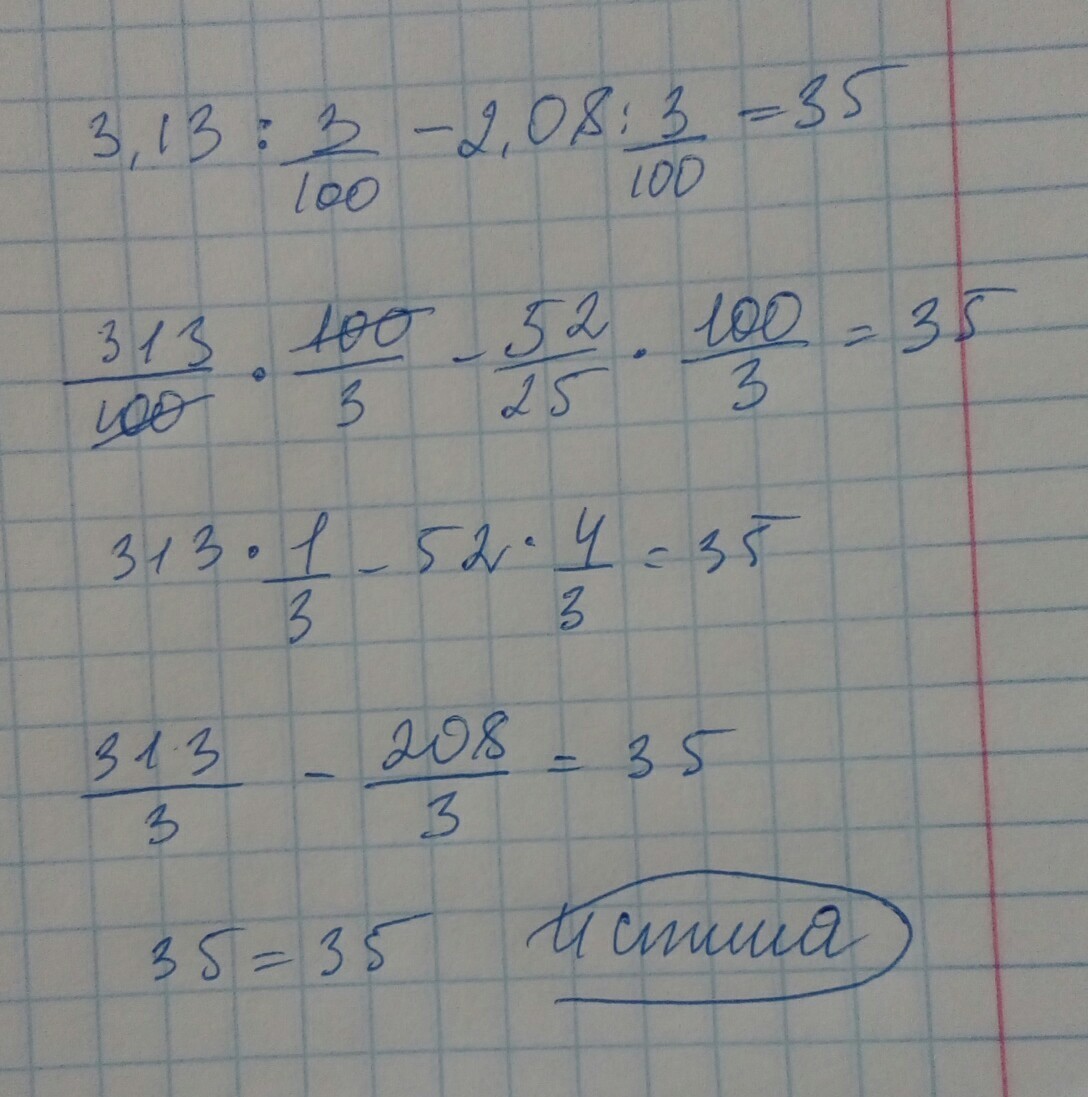 3,13 : 3/100 - 2,08 : 3/100 = 35
313/100 · 100/3 - 52/25 · 100/3 = 35
313 · 1/3 - 52 · 4/3 = 35
313/3 - 208/3 = 35
35 = 35 истина